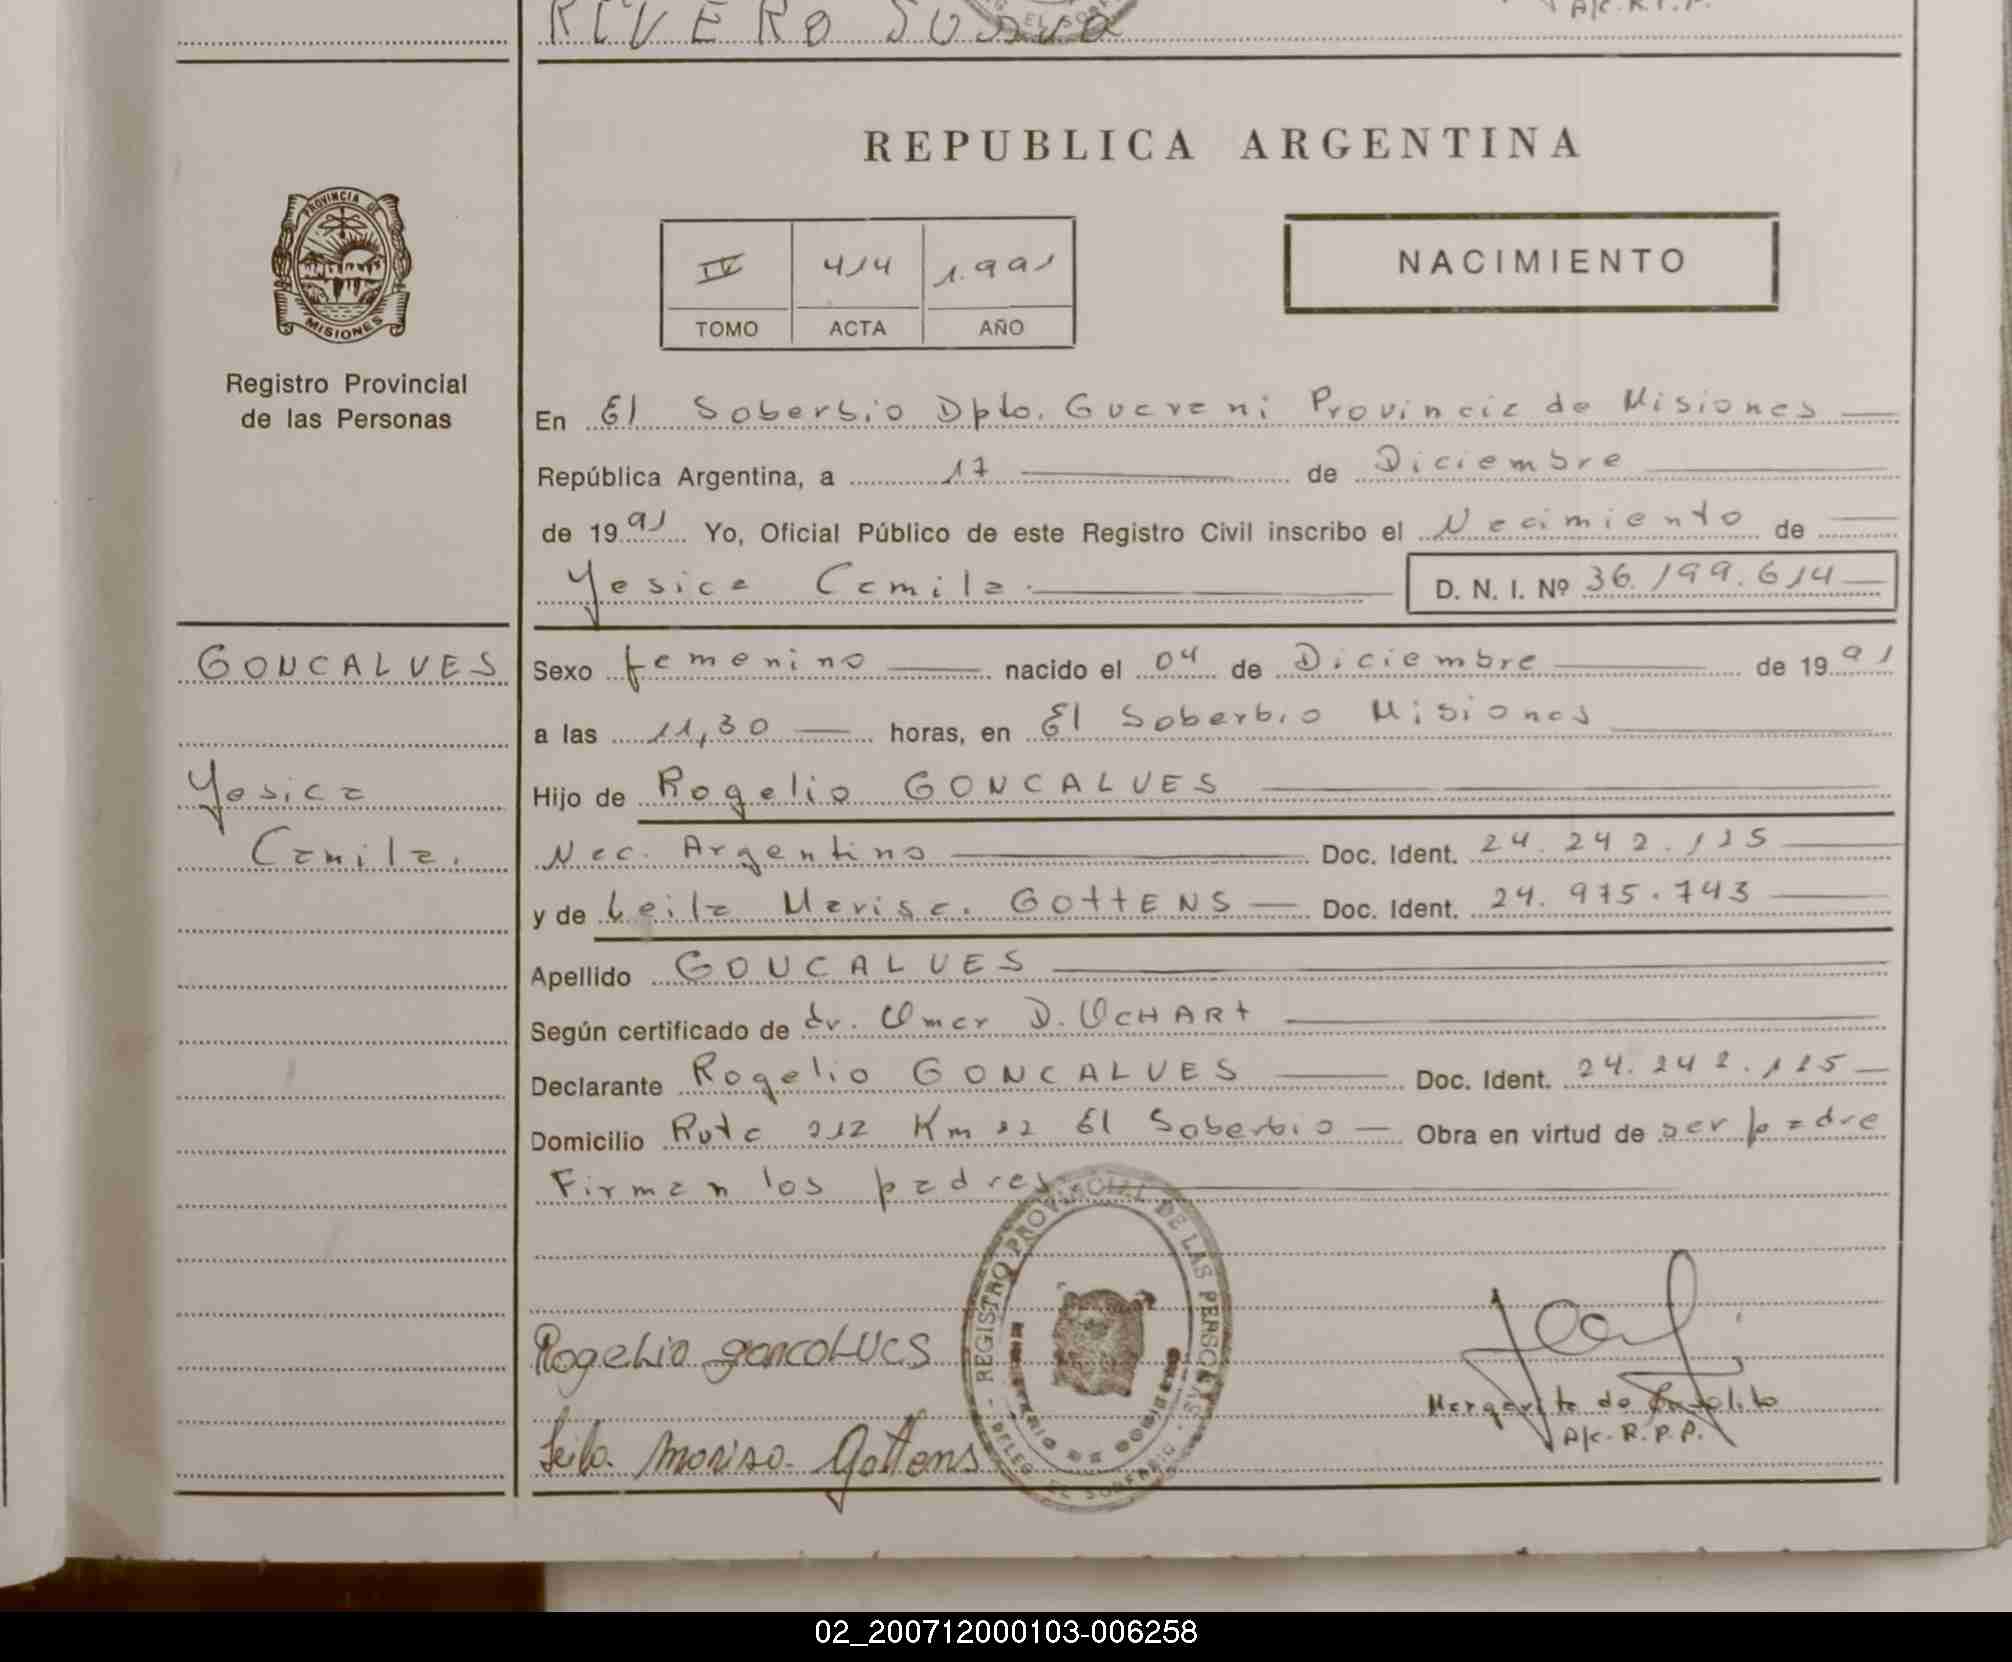 RIVERO SUSANA
A/c. R.P.P.
REPUBLICA ARGENTINA
PROVINCIA DE
MISIONES
Registro Provincial
de las Personas
IV 414 1.991
TOMO ACTA AÑO
NACIMIENTO
En El Soberbio Dpto. Guarani Provincia de Misiones
República Argentina, a 17 de Diciembre
de 1991 Yo, Oficial Público de este Registro Civil inscribo el Nacimiento de
Yesica Camila. D. N. I. Nº 36.199.614
GONCALVES
Yesica
Camila.
Sexo femenino nacido el 04 de Diciembre de 1991
a las 11,30 horas, en El Soberbio Misiones
Hijo de Rogelio GONCALVES
Nac. Argentino Doc. Ident. 24.242.125
y de Leila Marisa. GOttENS Doc. Ident. 24.975.743
Apellido GONCALVES
Según certificado de dr. Omar D. OCHARt
Declarante Rogelio GONCALVES Doc. Ident. 24.242.125
Domicilio Ruta 212 Km El Soberbio Obra en virtud de ser padre
Firman los padres
REGISTRO PROVINCIAL DE LAS PERSONAS
MINISTERIO DE GOBIERNO
DELEG. EL SOBERBIO
Rogelio goncalves
Leila. Marisa. Gottens
Margarita de
A/c. R.P.P.
02_200712000103-006258